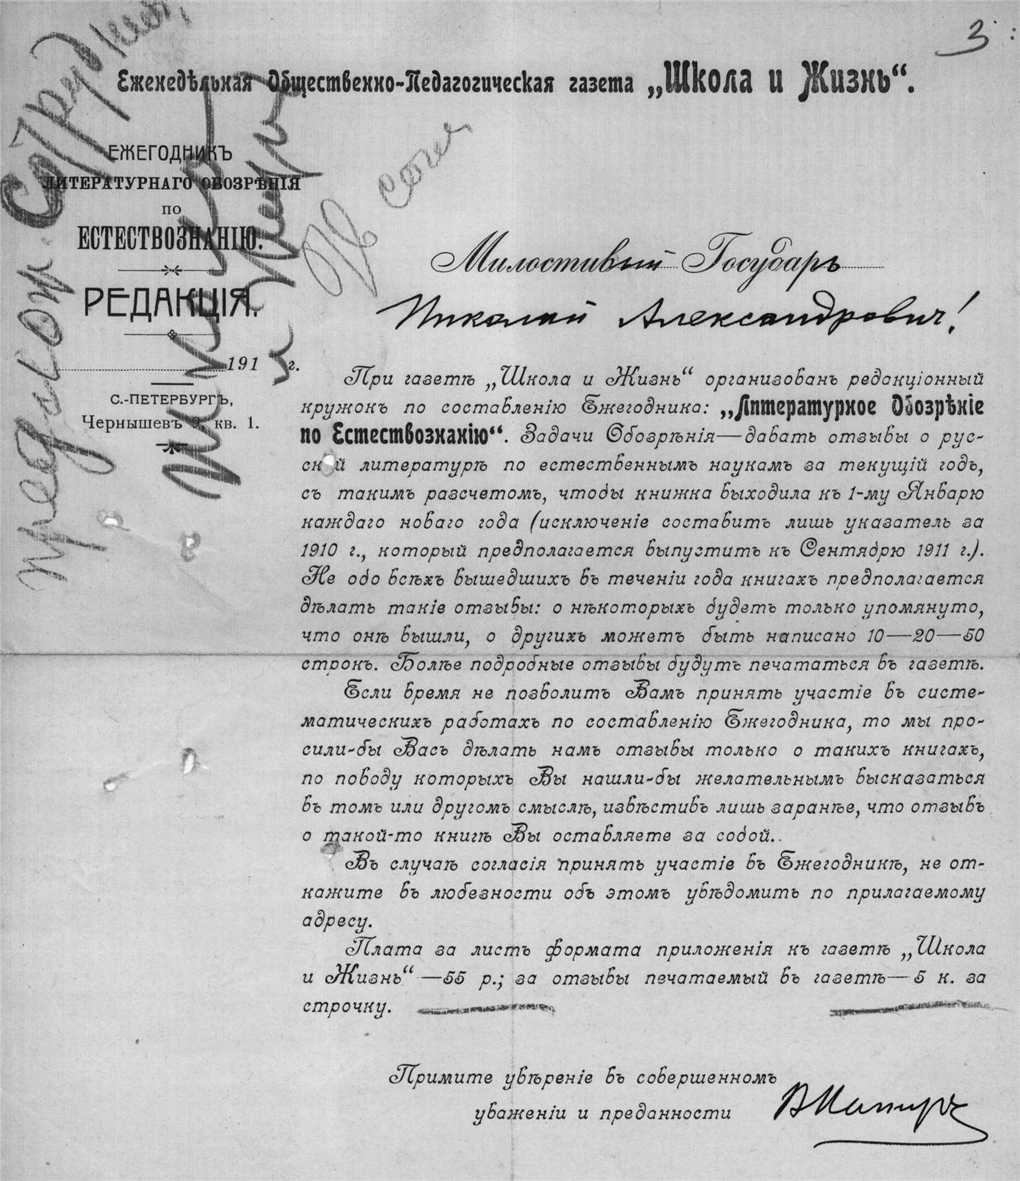 3
Еженедѣльная Общественно-Педагогическая газета „Школа и Жизнь“.
ЕЖЕГОДНИКЪ
ЛИТЕРАТУРНАГО ОБОЗРѢНІЯ
ПО
ЕСТЕСТВОЗНАНІЮ.
РЕДАКЦІЯ.
191 г.
С.-ПЕТЕРБУРГЪ,
Чернышев 9, кв. 1.
предлож. Сотрудник.
Школа
и Жизнь
Милостивый Государь
Николай Александрович!
При газетѣ „Школа и Жизнь“ организованъ редакціонный
кружокъ по составленію Ежегодника: „Литературное Обозрѣніе
по Естествознанію“. Задачи Обозрѣнія—давать отзывы о рус-
ской литературѣ по естественнымъ наукамъ за текущій годъ,
съ такимъ разсчетомъ, чтобы книжка выходила къ 1-му Январю
каждаго новаго года (исключеніе составитъ лишь указатель за
1910 г., который предполагается выпустить къ Сентябрю 1911 г.).
Не обо всѣхъ вышедшихъ въ теченіи года книгахъ предполагается
дѣлать такіе отзывы: о нѣкоторыхъ будетъ только упомянуто,
что онѣ вышли, о другихъ можетъ быть написано 10—20—50
строкъ. Болѣе подробные отзывы будутъ печататься въ газетѣ.
Если время не позволитъ Вамъ принять участіе въ систе-
матическихъ работахъ по составленію Ежегодника, то мы про-
сили-бы Васъ дѣлать намъ отзывы только о такихъ книгахъ,
по поводу которыхъ Вы нашли-бы желательнымъ высказаться
въ томъ или другомъ смыслѣ, извѣстивъ лишь заранѣе, что отзывъ
о такой-то книгѣ Вы оставляете за собой..
Въ случаѣ согласія принять участіе въ Ежегодникѣ, не от-
кажите въ любезности объ этомъ увѣдомить по прилагаемому
адресу.
Плата за листъ формата приложенія къ газетѣ „Школа
и Жизнь“ —55 р.; за отзывы печатаемый въ газетѣ—5 к. за
строчку.
Примите увѣреніе въ совершенномъ
уваженіи и преданности